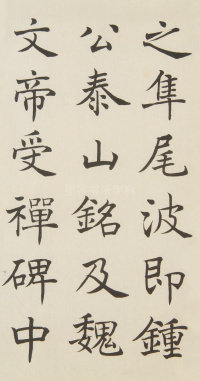 之隼尾波即鍾
公泰山銘及魏
文帝受禪碑中